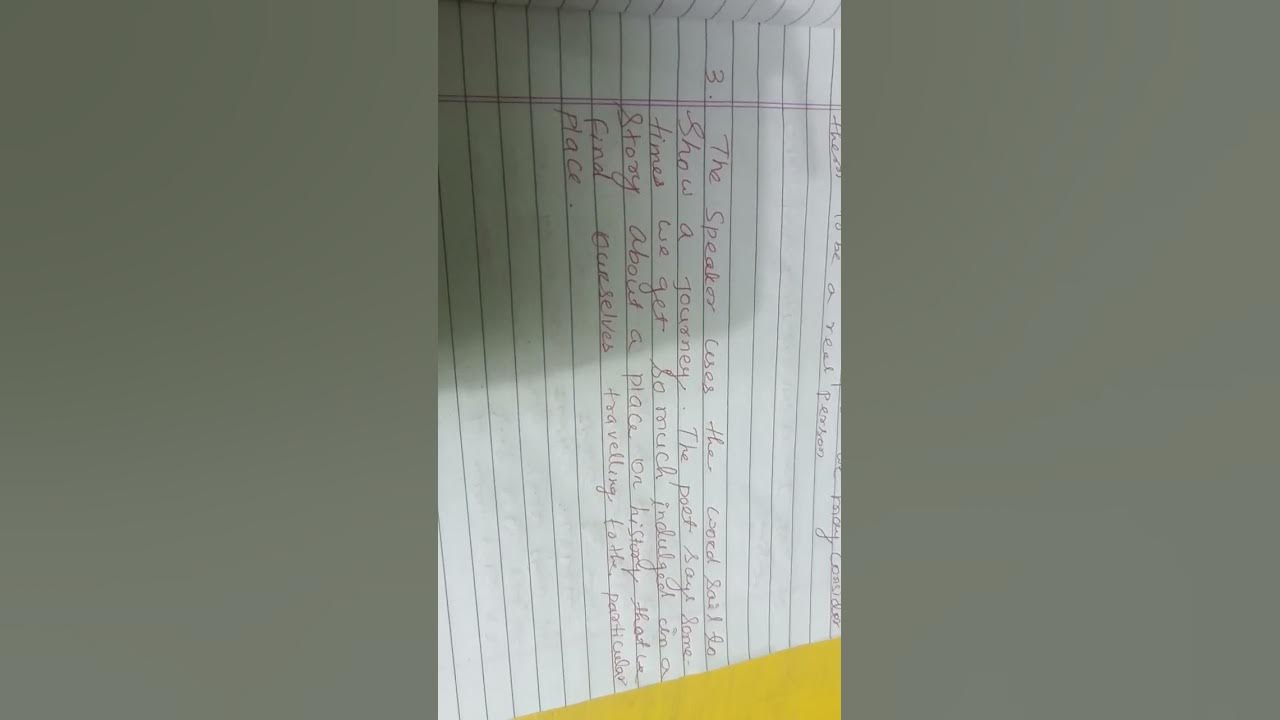 to be a real person
may consider
3. The Speaker uses the word sail to
Show a journey. The poet says some-
times we get so much indulged in a
Story about a place or history that we
find ourselves travelling to the particular
place.